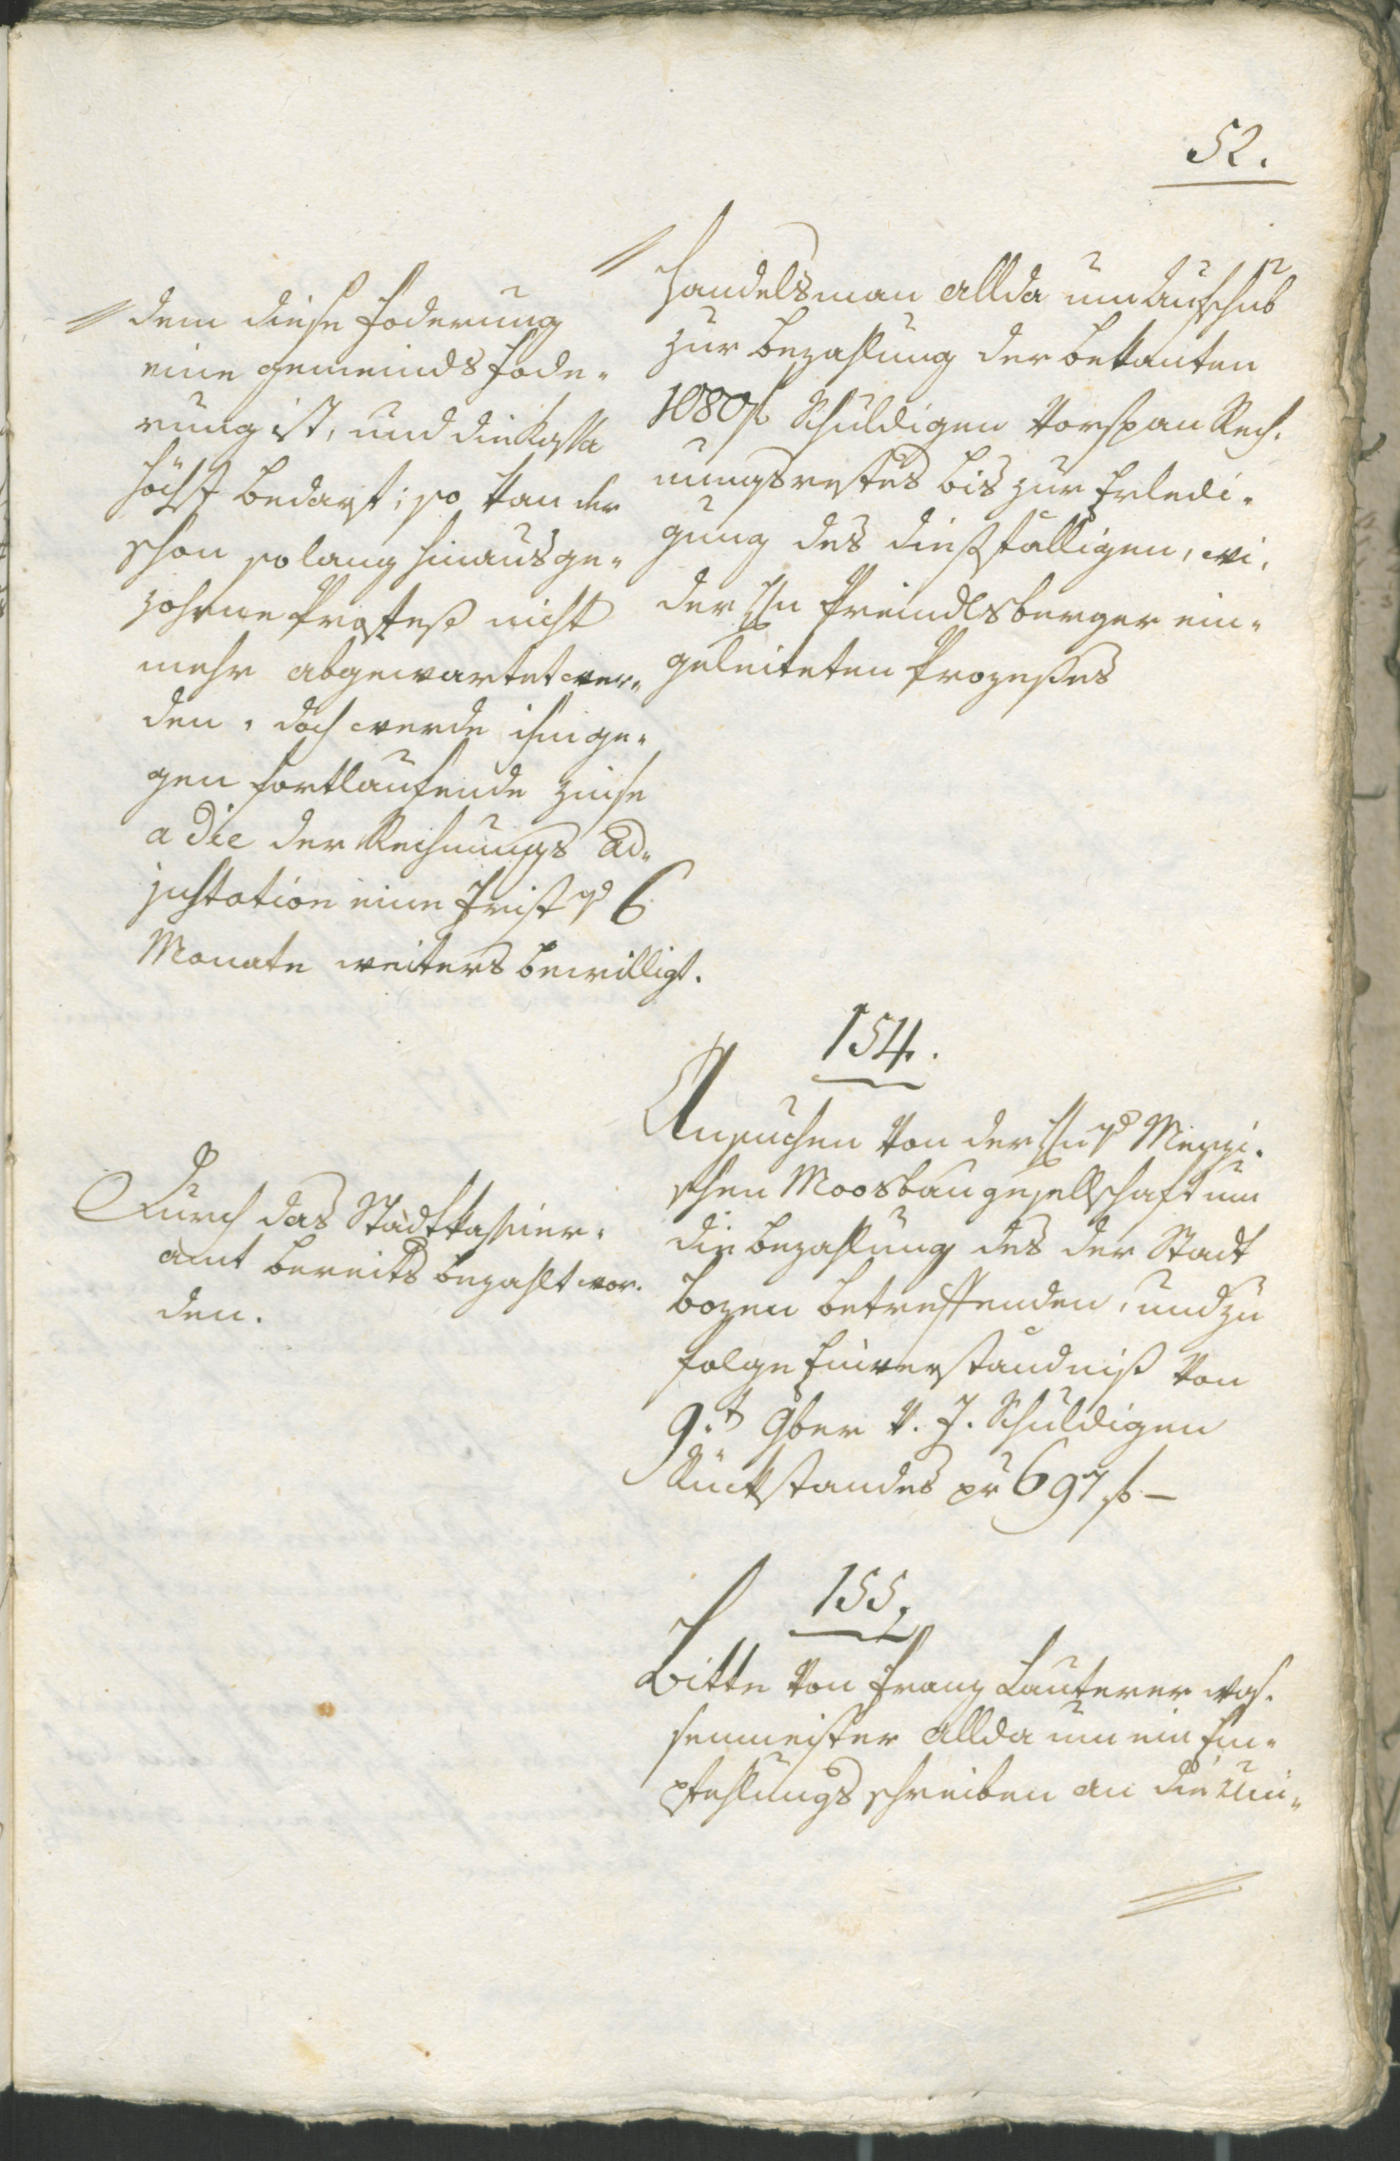 52.
dem diese Foderung
eine gemeinds Fode-
rung ist, und die Kassa
höchst bedarf; so kan der
schon so lang hinausge-
zohene Prozeß nicht
mehr abgewartet wer-
den, doch werde ihm ge-
gen fortlaufende Zinse
a die der Rechnungs Ad-
justation eine Frist v 6
Monate weiters bewilligt.
Handelsman allda um Aufschub
zur Bezahlung der bekanten
1080 f schuldigen Vorspan Rech-
nungsrestes bis zur Erledi-
gung des dießfälligen, wi-
der Hn Preindlsberger ein-
geleiteten Prozeßes
154.
Ansuchen von der Hn v Menzi-
schen Moosbaugesellschaft um
die Bezahlung des der Stadt
Bozen betreffenden, und zu
folge Einverständniß von
9.t 9ber v. J. schuldigen
Rückstandes pr 697 f –
Durch das Stadtkassier-
amt bereits bezahlt wor-
den.
155.
Bitte von Franz Lauterer Was-
senmeister allda um ein Em-
pfehlungsschreiben an die Uni-